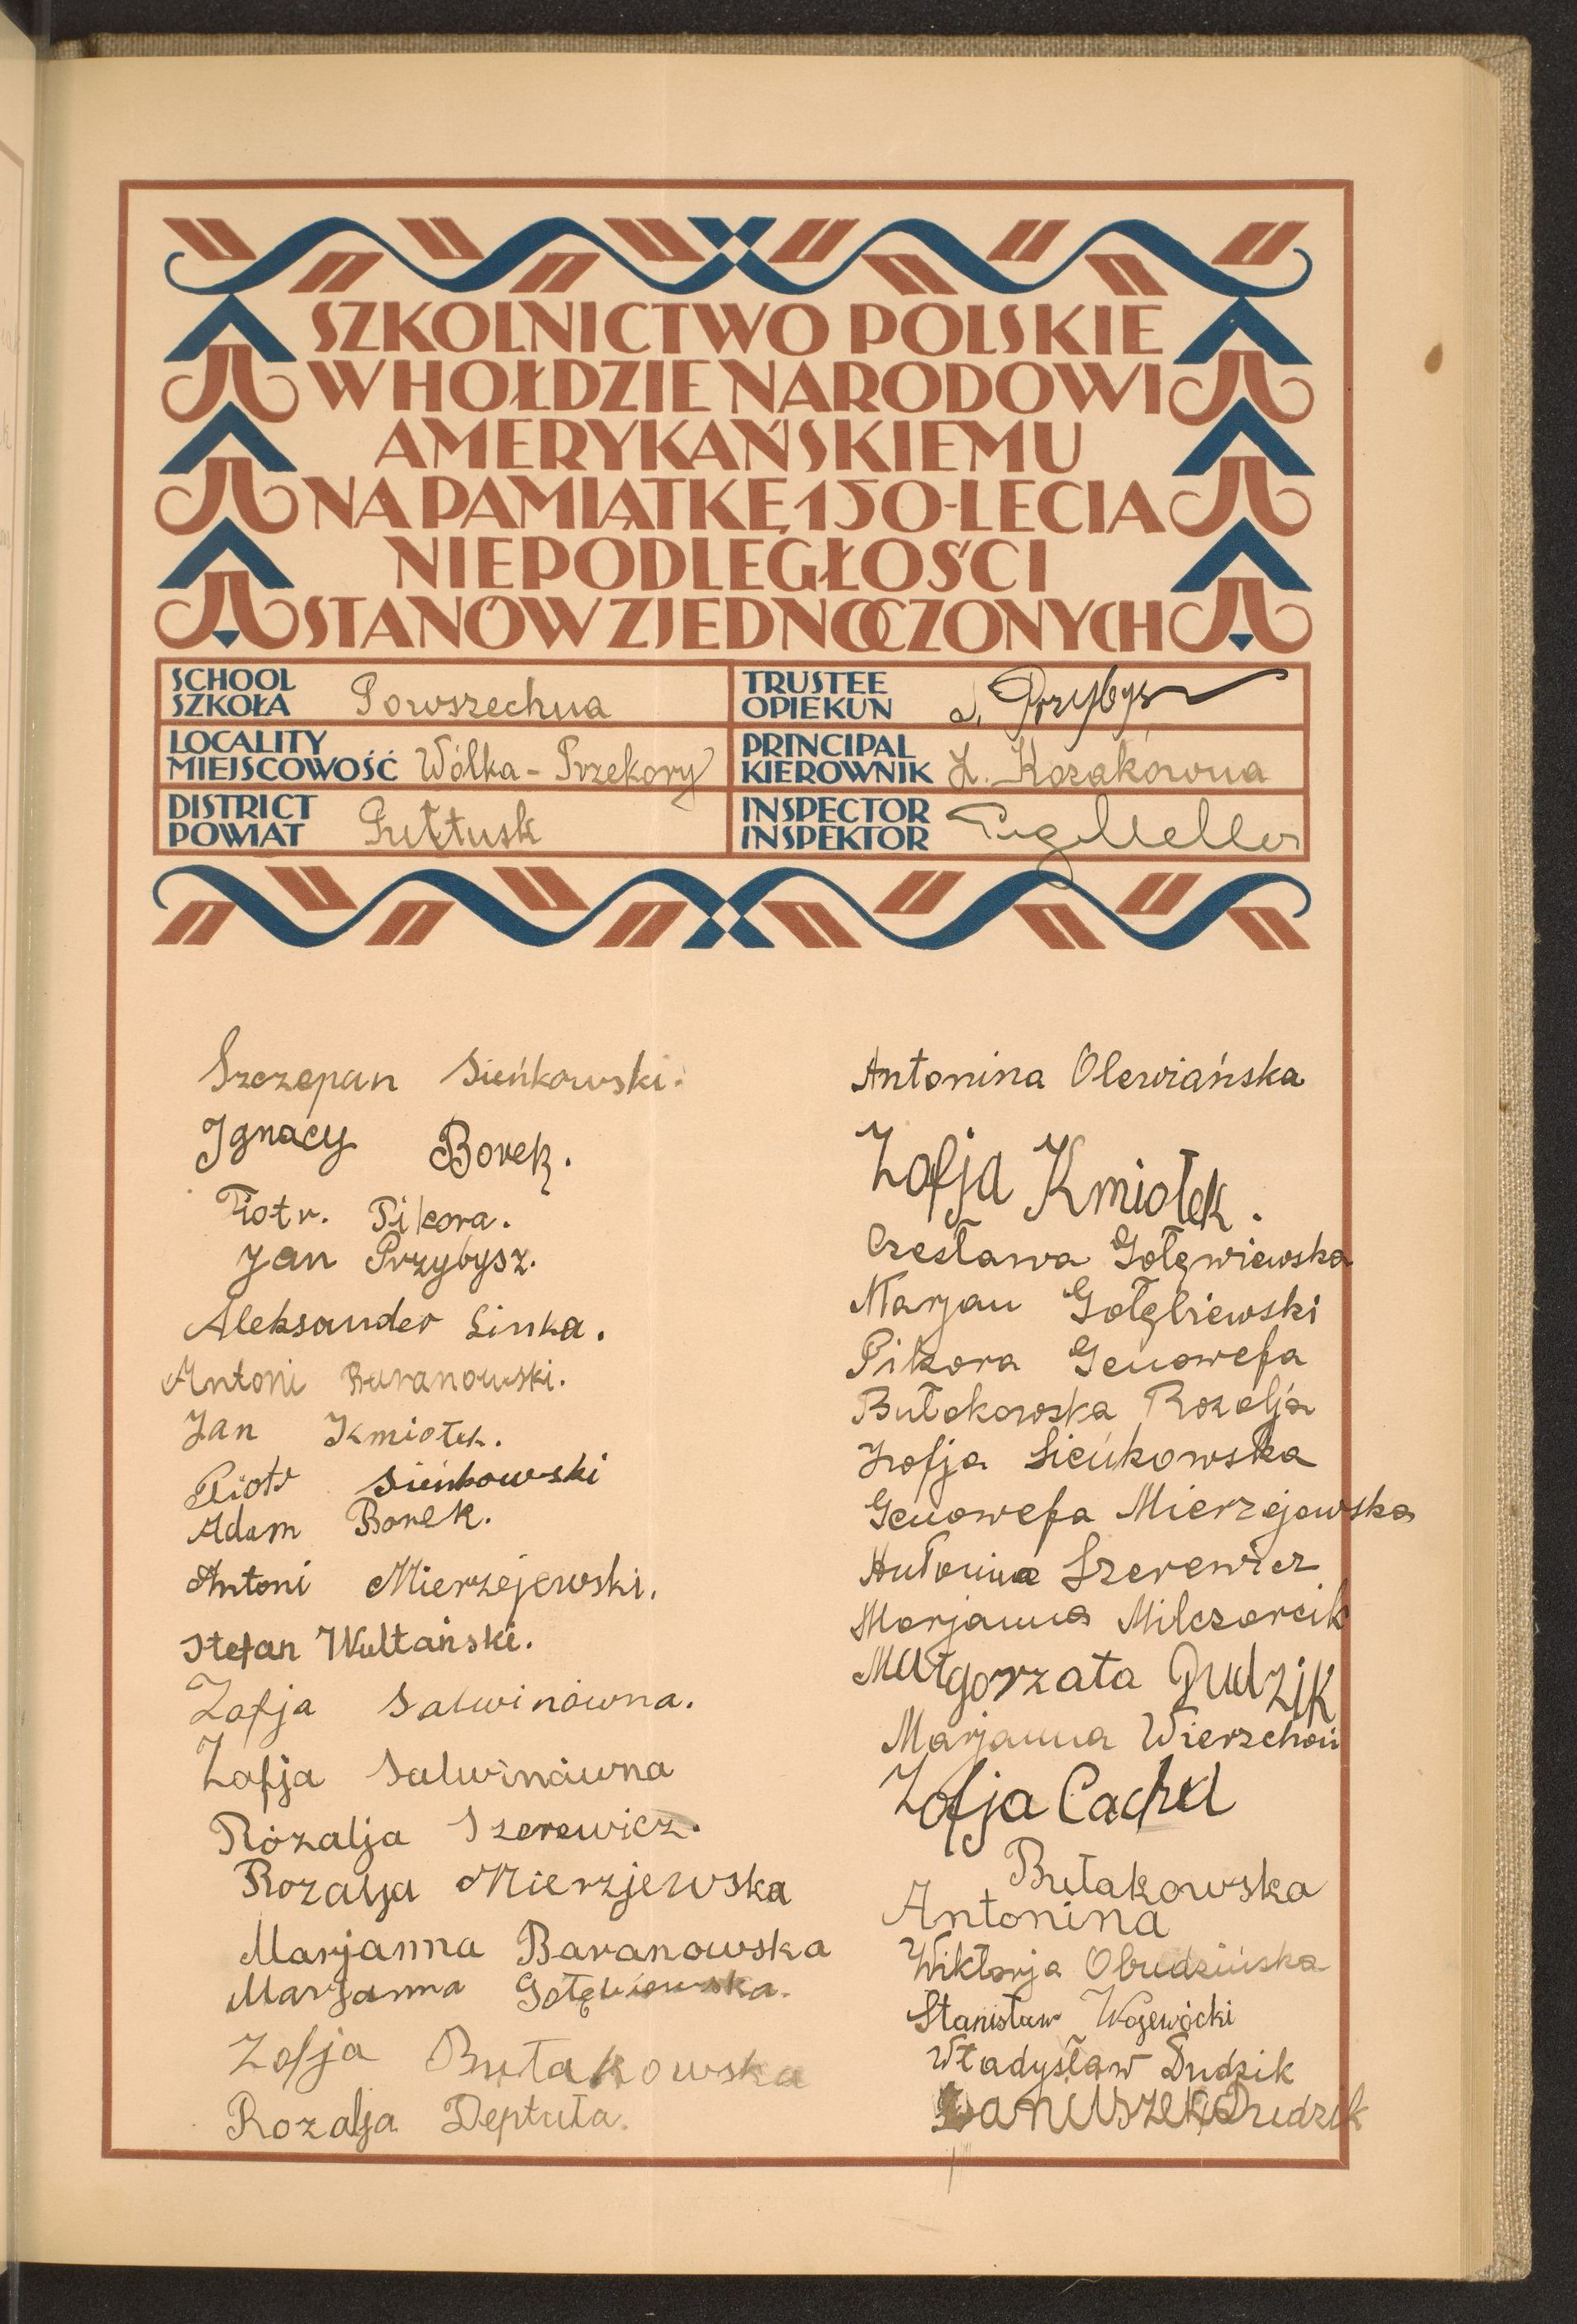 SZKOLNICTWO POLSKIE
W HOŁDZIE NARODOWI
AMERYKAŃSKIEMU
NA PAMIĄTKĘ 150-LECIA
NIEPODLEGŁOŚCI
STANÓW ZJEDNOCZONYCH
SCHOOL
SZKOŁA Powszechna
TRUSTEE
OPIEKUN Przybysz
LOCALITY
MIEJSCOWOŚĆ Wólka-Przekory
PRINCIPAL
KIEROWNIK Kozakówna
DISTRICT
POWIAT Pułtusk
INSPECTOR
INSPEKTOR
Szczepan Sieńkowski.
Ignacy Borek.
Piotr. Pikora.
Jan Przybysz.
Aleksander Linka.
Antoni Baranowski.
Jan Kmiołek.
Piotr Sieńkowski
Adam Borek.
Antoni Mierzejewski.
Stefan Wultański.
Zofja Salwinówna.
Zofja Salwinówna
Rózalja Szerewicz.
Rozalja Mierzjewska
Marjanna Baranowska
Marjanna Gołębiowska.
Zofja Bułakowska
Rozalja Deptuła.
Antonina Olewiańska
Zofja Kmiołek.
Czesława Gołęwiewska
Marjan Gołębiewski
Pikora Genowefa
Bułakowska Rozalja
Zofja Sieńkowska
Genowefa Mierzejewska
Antonina Szerewicz
Marjanna Milczarcik
Małgorzata Dudzik
Marjanna Wierzchoń
Zofja Cachel
Bułakowska
Antonina
Wiktorja Obudzińska
Stanisław Wojewócki
Władysław Dudzik
Dudzik